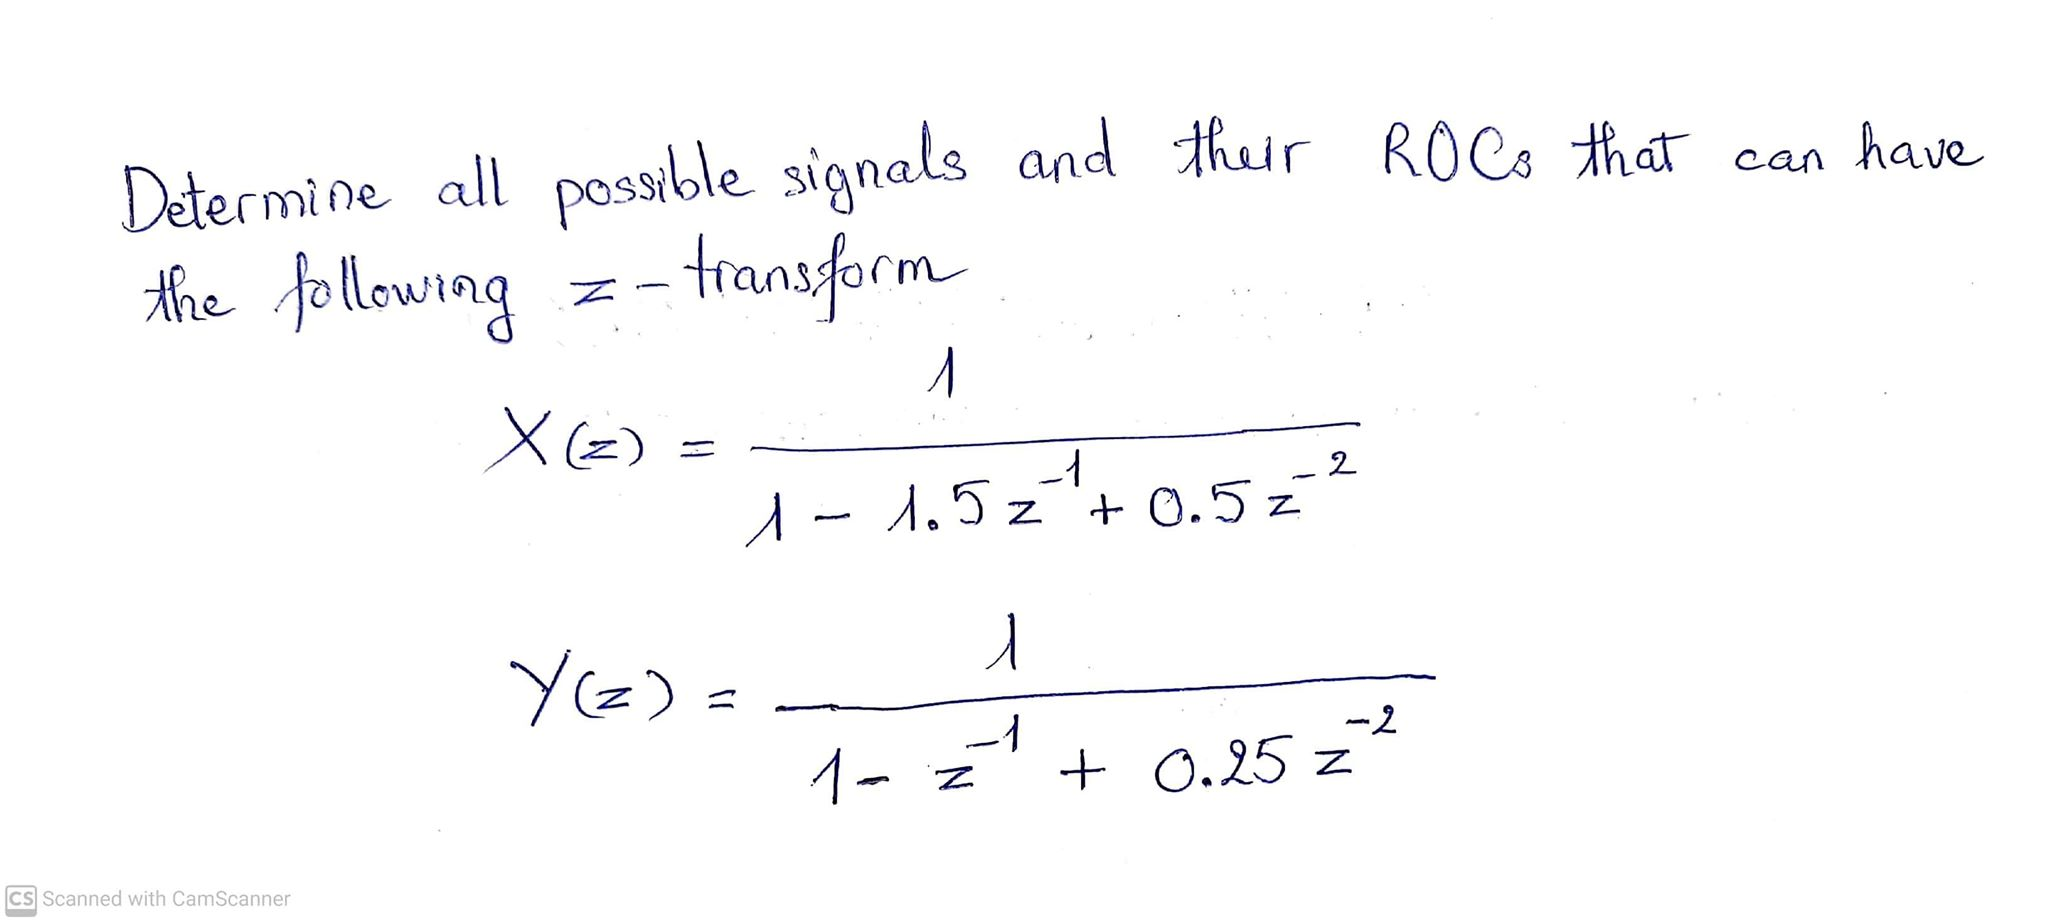 Determine all possible signals and their ROCs that can have
the following z-transform
X(z) = 1 / (1 - 1.5 z^-1 + 0.5 z^-2)
Y(z) = 1 / (1 - z^-1 + 0.25 z^-2)
CS Scanned with CamScanner